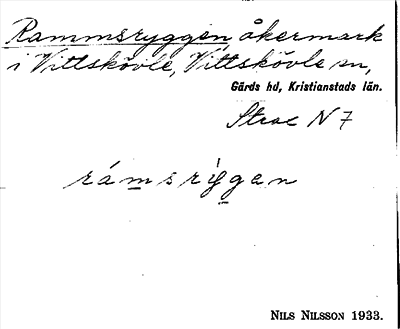 Rammsryggen åkermark
i Vittskövle, Vittskövle sn,
Gärds hd, Kristianstads län.
Strac N 7
rámsrỳgen
NILS NILSSON 1933.